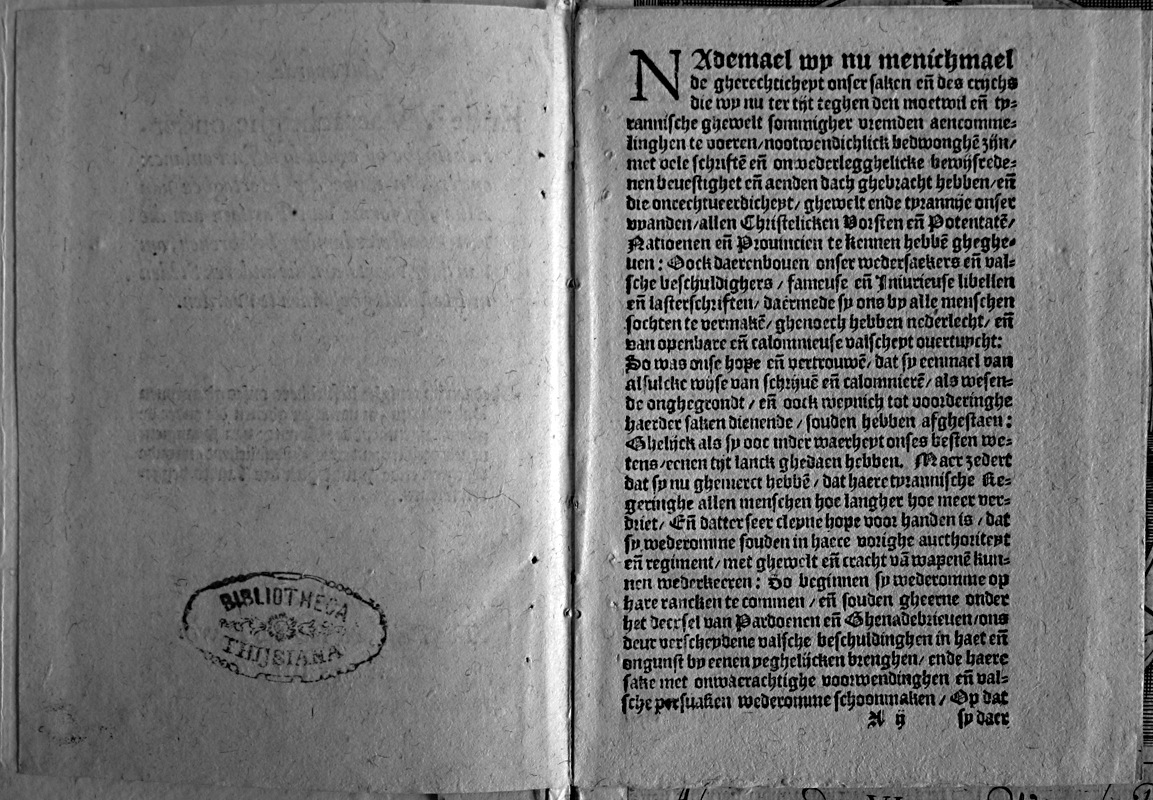 BIBLIOTHECA
THIJSIANA
NAdemael wy nu menichmael
de gherechticheyt onser saken eñ des crijchs
die wy nu ter tijt teghen den moetwil eñ ty⸗
rannische ghewelt sommigher vremden aencomme⸗
linghen te voeren/nootwendichlick bedwonghē zijn/
met vele schriftē eñ onwederlegghelicke bewijsrede⸗
nen beuestighet eñ aenden dach ghebracht hebben/eñ
die onrechtueerdicheyt/ ghewelt ende tyrannije onser
vyanden/allen Christelicken Vorsten eñ Potentatē/
Natioenen eñ Prouincien te kennen hebbē gheghe⸗
uen: Oock daerenbouen onser wedersaekers eñ val⸗
sche beschuldighers / fameuse eñ Iniurieuse libellen
eñ lasterschriften/ daermede sy ons by alle menschen
sochten te vermakē/ ghenoech hebben nederlecht/ eñ
van openbare eñ calomnieuse valscheyt ouertuycht:
So was onse hope eñ vertrouwē/ dat sy eenmael van
alsulcke wyse van schrijuē eñ calomnierē/ als wesen⸗
de onghegrondt / eñ oock weynich tot voorderinghe
haerder saken dienende / souden hebben afghestaen:
Ghelijck als sy ooc inder waerheyt onses besten we⸗
tens/eenen tijt lanck ghedaen hebben. Maer zedert
dat sy nu ghemerct hebbē / dat haere tyrannische Re⸗
geringhe allen menschen hoe langher hoe meer ver⸗
driet/ Eñ datter seer cleyne hope voor handen is / dat
sy wederomme souden in haere vorighe aucthoriteyt
eñ regiment/ met ghewelt eñ cracht vā wapenē kun⸗
nen wederkeeren: So beginnen sy wederomme op
hare rancken te commen / eñ souden gheerne onder
het decksel van Pardoenen eñ Ghenadebrieuen/ons
deur verscheydene valsche beschuldinghen in haet eñ
ongunst by eenen yeghelijcken brenghen/ ende haere
sake met onwaerachtighe voorwendinghen eñ val⸗
sche persuasien wederomme schoonmaken / Op dat
A ij sy daer